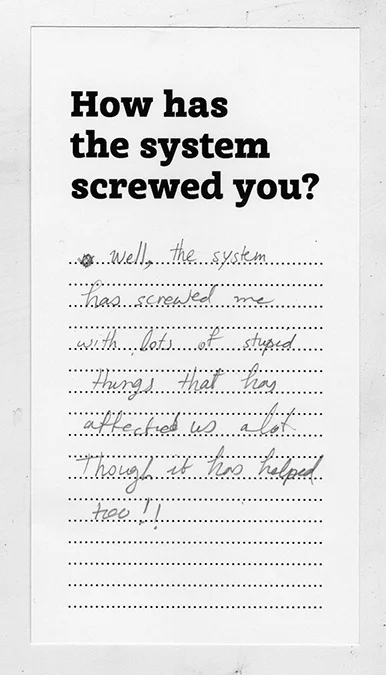 How has
the system
screwed you?
Well, the system
has screwed me
with lots of stupid
things that has
affected us alot
Though it has helped
too!!